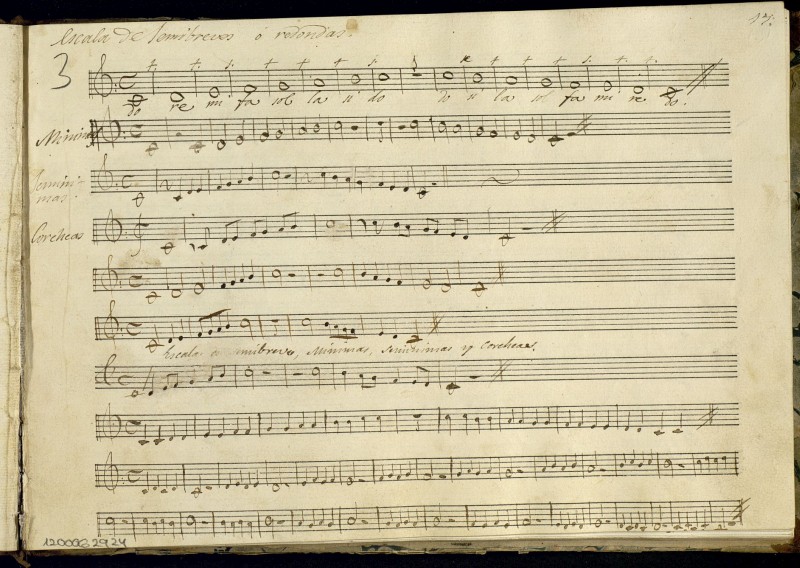 Escala de Semibreves ó redondas.
17.
3
t. t. s. t t t s. t t t s. t. t.
do re mi fa sol la si do do si la sol fa mi re do.
Minimas
Semini-
mas.
Corcheas
Escala de semibreves, Minimas, Seminimas y Corcheas.